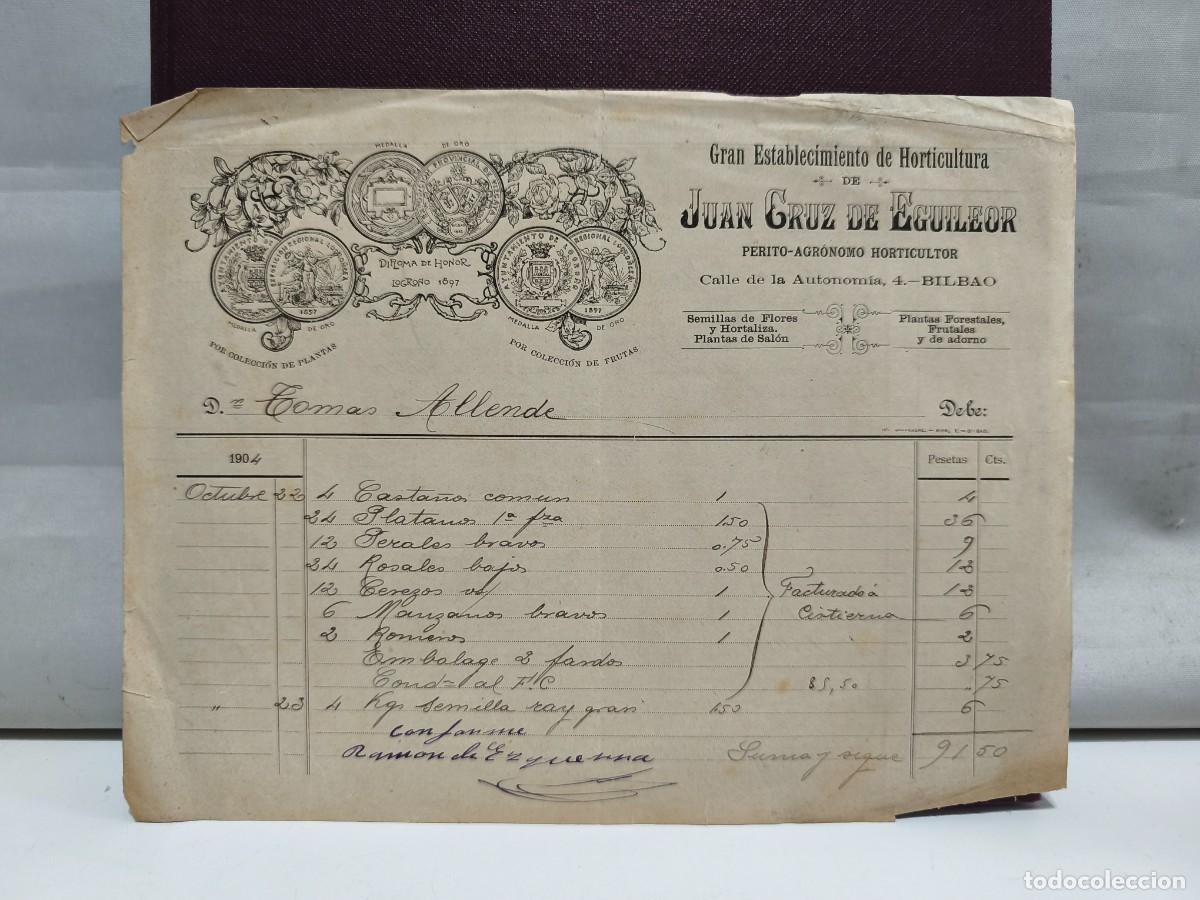 MEDALLA DE ORO
DIPLOMA DE HONOR
LOGROÑO 1897
AYUNTAMIENTO DE LOGROÑO
EXPOSICION REGIONAL LOGROÑESA
1897
MEDALLA DE ORO
POR COLECCIÓN DE PLANTAS
AYUNTAMIENTO DE LOGROÑO
REGIONAL LOGROÑESA
1897
MEDALLA DE ORO
POR COLECCIÓN DE FRUTAS
Gran Establecimiento de Horticultura
DE
JUAN CRUZ DE EGUILEOR
PERITO-AGRÓNOMO HORTICULTOR
Calle de la Autonomía, 4.—BILBAO
Semillas de Flores
y Hortaliza.
Plantas de Salón
Plantas Forestales,
Frutales
y de adorno
D.n Tomas Allende Debe:
1904 Pesetas Cts.
Octubre 22 4 Castaños comun 1 4
24 Platanos 1ª fza 1.50 36
12 Perales bravos 0.75 9
24 Rosales bajos 0.50 12
12 Cerezos 1 Facturado á 12
6 Manzanos bravos 1 Cistierna 6
2 Romeros 1 2
Embalage 2 fardos 3 75
Cond= al F.C 85,50 " 75
" 23 4 Kgs semilla ray gras 1.50 6
Conforme
Ramon de Ezquerra Suma y sigue 91 50
todocoleccion